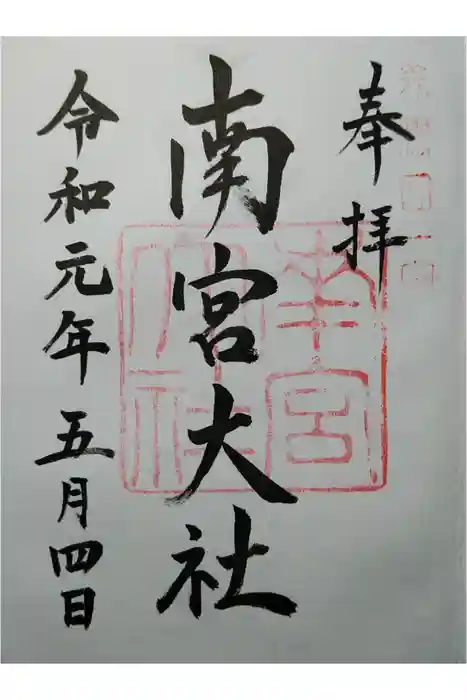 奉拝
南宮大社
令和元年五月四日
南宮
大社